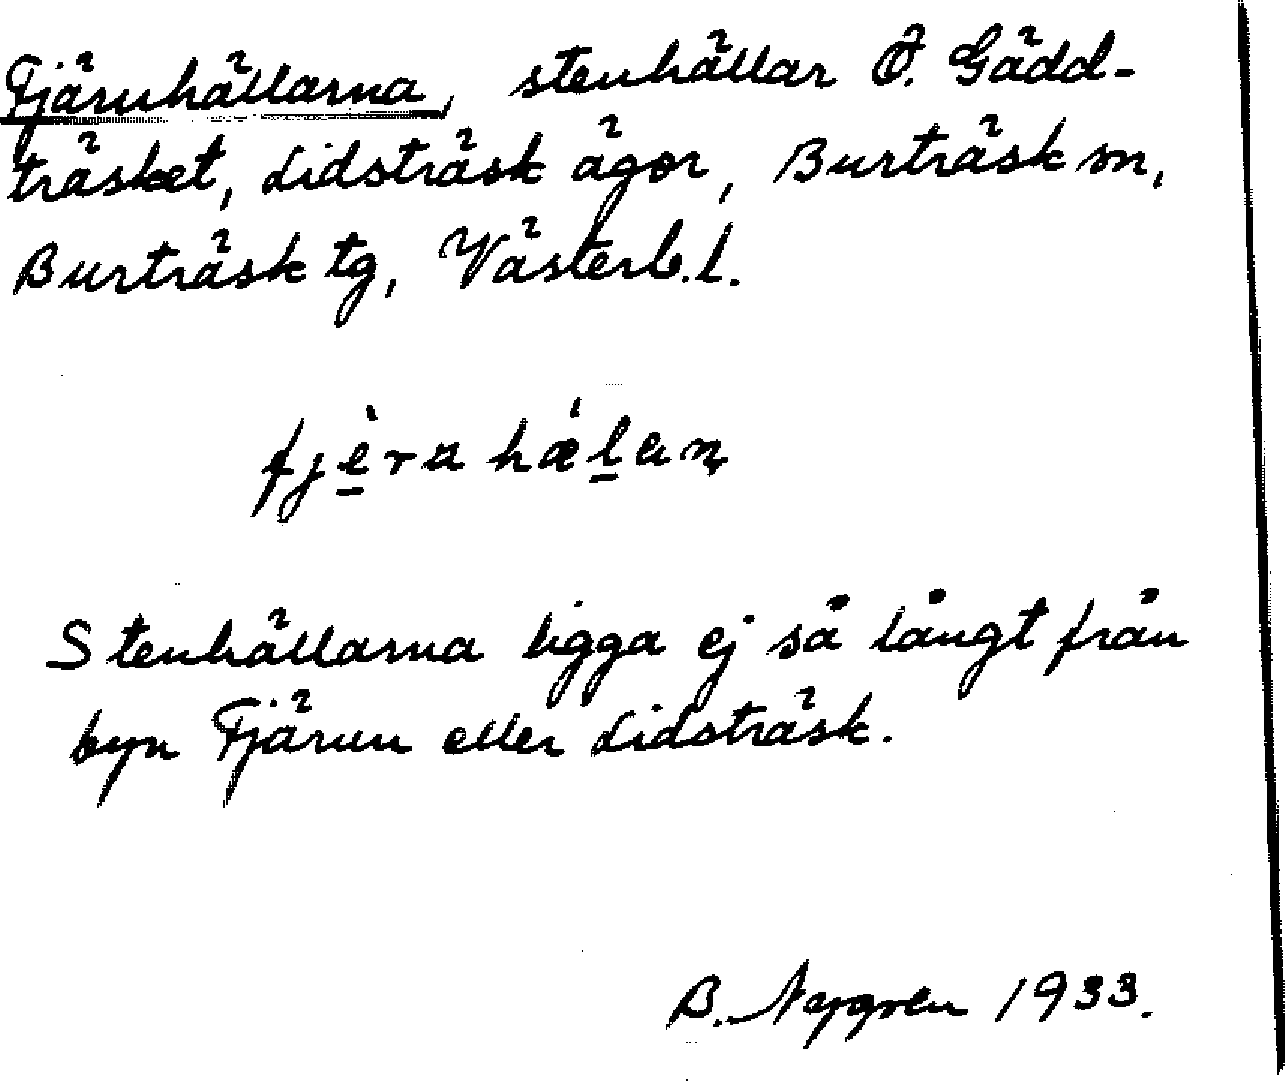 Fjärnhällarna, stenhällar Ö. Gädd-
träsket, Lidsträsk ägor, Burträsk sn,
Burträsk tg, Västerb.l.
fjèra hǽlan
Stenhällarna ligga ej så långt från
byn Fjärun eller Lidsträsk.
B. Nygren 1933.